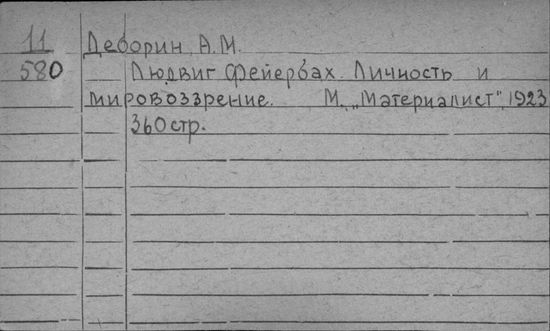 11 Деборин, А.М.
580 Людвиг Фейербах. Личность и
мировоззрение. М, „Материалист", 1923
360 стр.